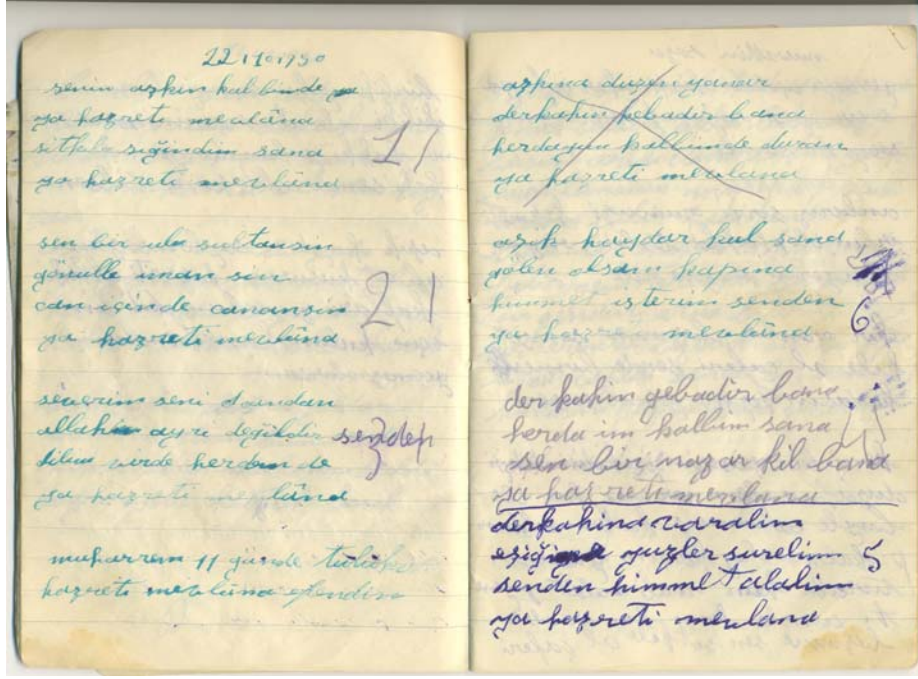 22 1101950
senin aşkın kalbimde
ya hazreti mevlâna
sitkıla siğindim sana 1
ya hazreti mevlâna
sen bir ulu sultansin
gönülle iman sin
can içinde canansin 2
ya hazreti mevlâna
severim seni candan
allah ayri değildir senden
dilim virde her dem de 3
ya hazreti mevlâna
muharrem 11 günde
hazreti mevlâna efendim
aşkına duzen yanar
derkahin kebadir bana
herdayim kalbimde duran
ya hazreti mevlana
aşik haydar kul sana
gölen olsam kapına
himmet isterim senden 6
ya hazreti mevlâna
derkahin gebadir bana
herda im kalbim sana
sen bir nazar kil bana
ya hazreti mevlana
derkahina varalim
eşiği yuzler surelim 5
senden himmet alalim
ya hazreti mevlana